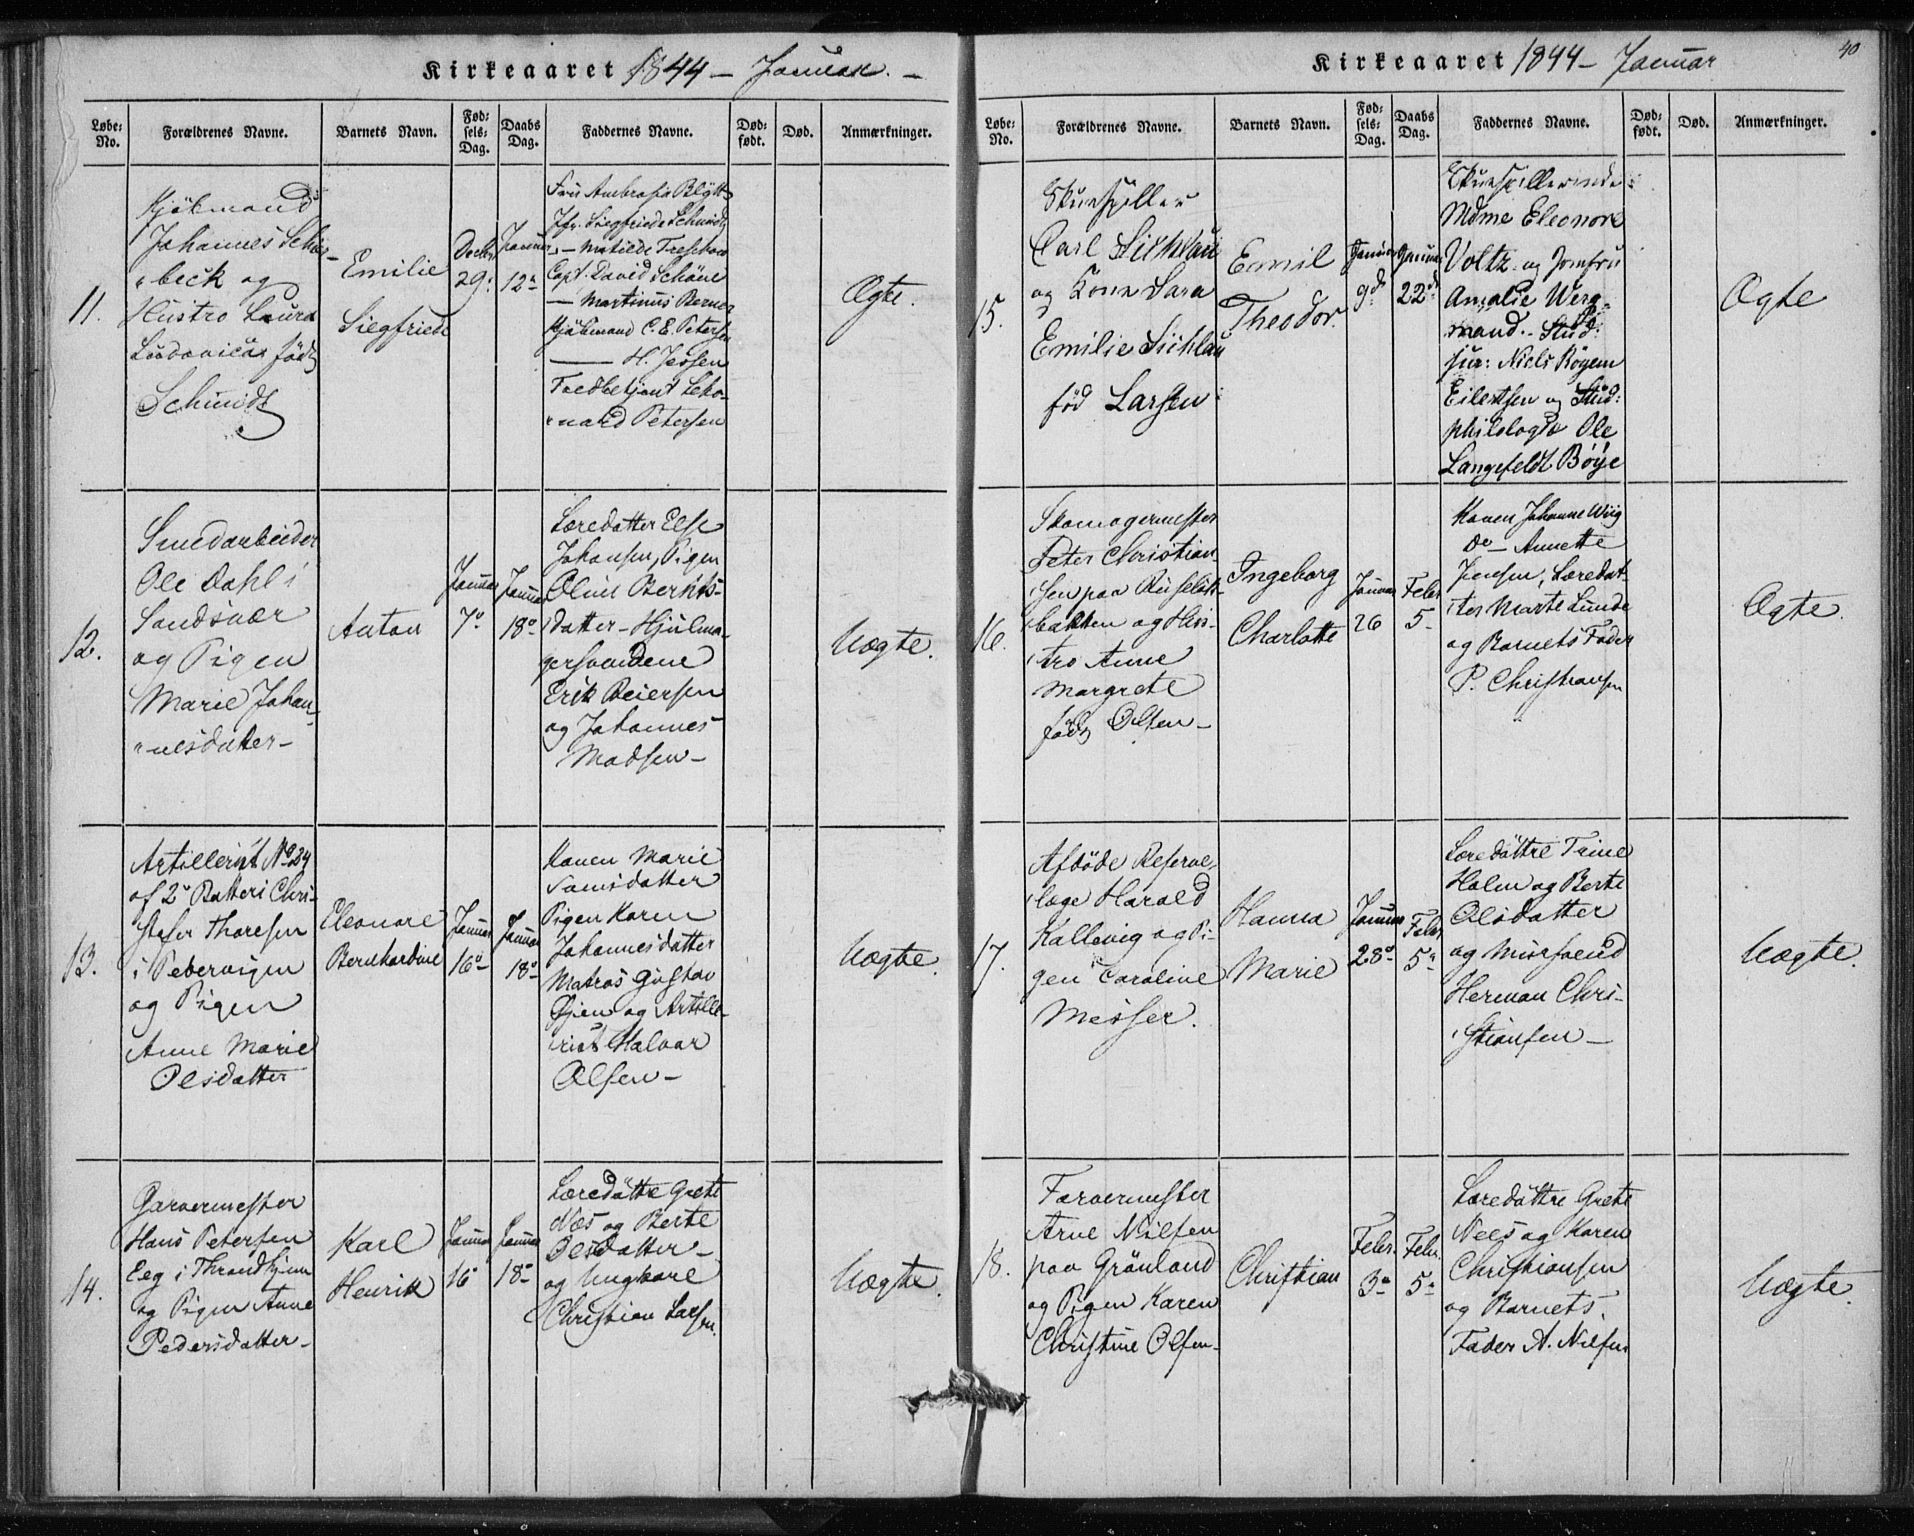 Kirkeaaret 1844 – Januar. –
Løbe-No. Forældrenes Navne. Barnets Navn. Fødsels-Dag. Daabs Dag. Faddernes Navne. Død-født. Død. Anmærkninger.
11.
Kjöbmand
Johannes
beck og
Hustro Laura
Ludovica födt
Schmidt
Emilie
Siegfriede
Decbr
29.
Januar
12.
Fru Ambrosia Blytt
Jfr. Siegfriede Schmidt
– Matilde Treschow
Capt. David Schöne
– Martinus Berner
Kjöbmand C. E. Petersen
– H. Jessen
Petersen
Ægte.
12.
Smedarbeider
Ole Dahl i
Sandsvær
og Pigen
Marie Johan-
nesdatter –
Anton
Januar
7de
Januar
18de
Læredatter Else
Johansen, Pigen
Oline Bernts-
datter – Hjulma-
gersvendene
Erik Reiersen
og Johannes
Madsen –
Uægte.
13.
Artillerist No 224
af 2de Batteri Chri-
stofer Thoresen
i Pebervigen
og Pigen
Anne Marie
Olsdatter
Eleonore
Bernhardine
Januar
16de
Januar
18de
Konen Marie
Pigen Karen
Johannesdatter
Matros Gustav
Öjen og Artille-
rist Halvor
Olsen –
Uægte.
14.
Garvermester
Hans Petersen
Eeg i Throndhjem
og Pigen Anne
Pedersdatter –
Karl
Henrik
Januar
16de
Januar
18de
Læredöttre Grete
Næs og Berte
Olsdatter –
og Ungkarl
Christian Larsen.
Uægte.
Kirkeaaret 1844 – Januar
40
Løbe-No. Forældrenes Navne. Barnets Navn. Fødsels-Dag. Daabs Dag. Faddernes Navne. Død-født. Død. Anmærkninger.
15.
Skuespiller
Carl Sichlau
og Kone Sara
Emilie Sichlau
föd Larsen
Emil
Theodor.
Januar
9de
Januar
22de
Skuespillerinde
Mdme Eleonore
Voltz og Jomfru
Amalie Werg-
mand. – Stud:
jur: Niels Rögem
Eilertsen og Stud:
philolog Ole
Langefeldt Böye
Ægte
16.
Skomagermester
Peter Christian-
sen paa Ruselök-
bakken og Hus-
tro Anne
Margrete
föd Olsen –
Ingeborg
Charlotte
Januar
26
Febr.
5
Konen Johanne Wiig
Do – Annette
Jensen, Læredat-
ter Marte Lunde
og Barnets Fader
P. Christiansen
Ægte.
17.
Afdöde Reserve-
læge Harald
Kallevig og Pi-
gen Caroline
Messer.
Hanna
Marie
Januar
28de
Febr.
5te
Læredöttre Trine
Holm og Berte
Olsdatter
og Muursvend
Herman Chri-
stiansen –
Uægte.
18.
Farvermester
Arne Nilsen
paa Grönland
og Pigen Karen
Christine Olsen –
Christian
Febr.
3de
Febr.
5te
Læredöttre Grete
Nees og Karen
Christiansen
og Barnets
Fader A. Nilsen
Uægte.